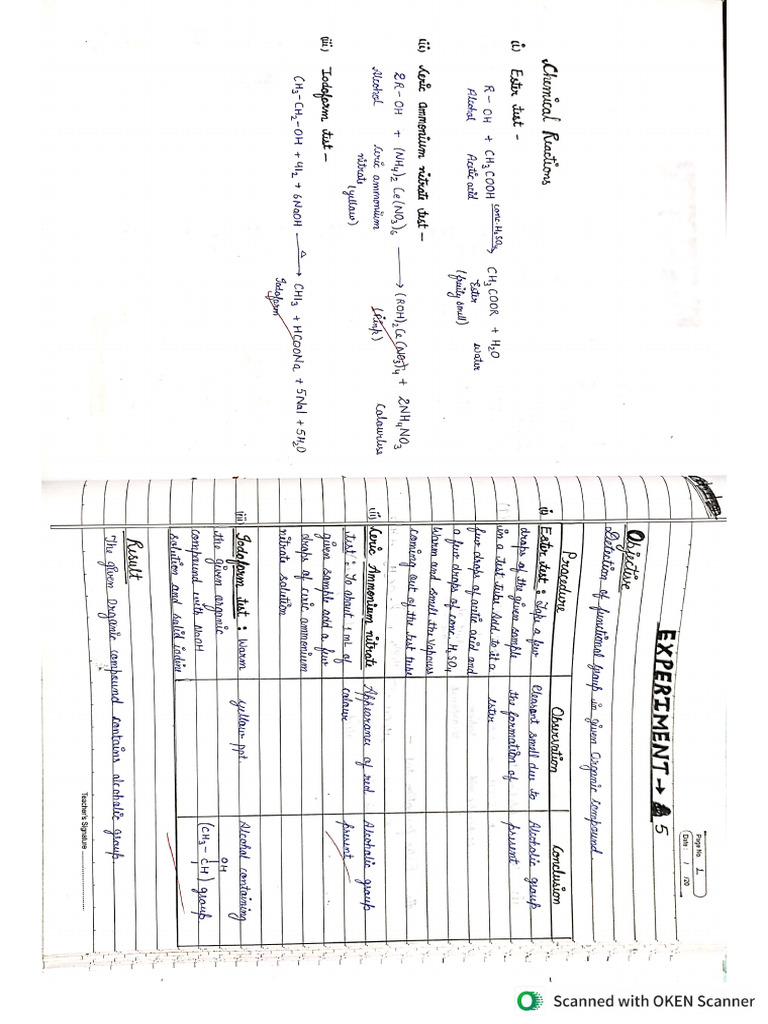 Chemical Reactions
(i) Ester test -
R - OH + CH3COOH conc. H2SO4 → CH3COOR + H2O
Alcohol Acetic acid Ester water
(fruity smell)
(ii) Ceric ammonium nitrate test -
2R - OH + (NH4)2 Ce(NO3)6 → (ROH)2Ce(NO3)4 + 2NH4NO3
Alcohol Ceric ammonium (Pink) Colourless
nitrate (yellow)
(iii) Iodoform test -
CH3-CH2-OH + 4I2 + 6NaOH Δ → CHI3 + HCOONa + 5NaI + 5H2O
Iodoform
Page No. 1
Date: / /20
EXPERIMENT → 5
Objective
Detection of functional group in given Organic compound
Procedure Observation Conclusion
(i) Ester test : Take a few Pleasant smell due to Alcoholic group
drops of the given sample the formation of present
in a test tube Add to it a ester
few drops of acetic acid and
a few drops of conc. H2SO4
Warm and smell the vapours
coming out of the test tube
(ii) Ceric Ammonium nitrate Appearance of red Alcoholic group
test : To about 1 mL of colour present
given sample add a few
drops of ceric ammonium
nitrate solution
(iii) Iodoform test : Warm yellow ppt. Alcohol containing
the given organic OH
compound with NaOH (CH3 - CH) group
solution and solid iodine
Result
The given Organic compound contains alcoholic group.
Teacher's Signature
Scanned with OKEN Scanner